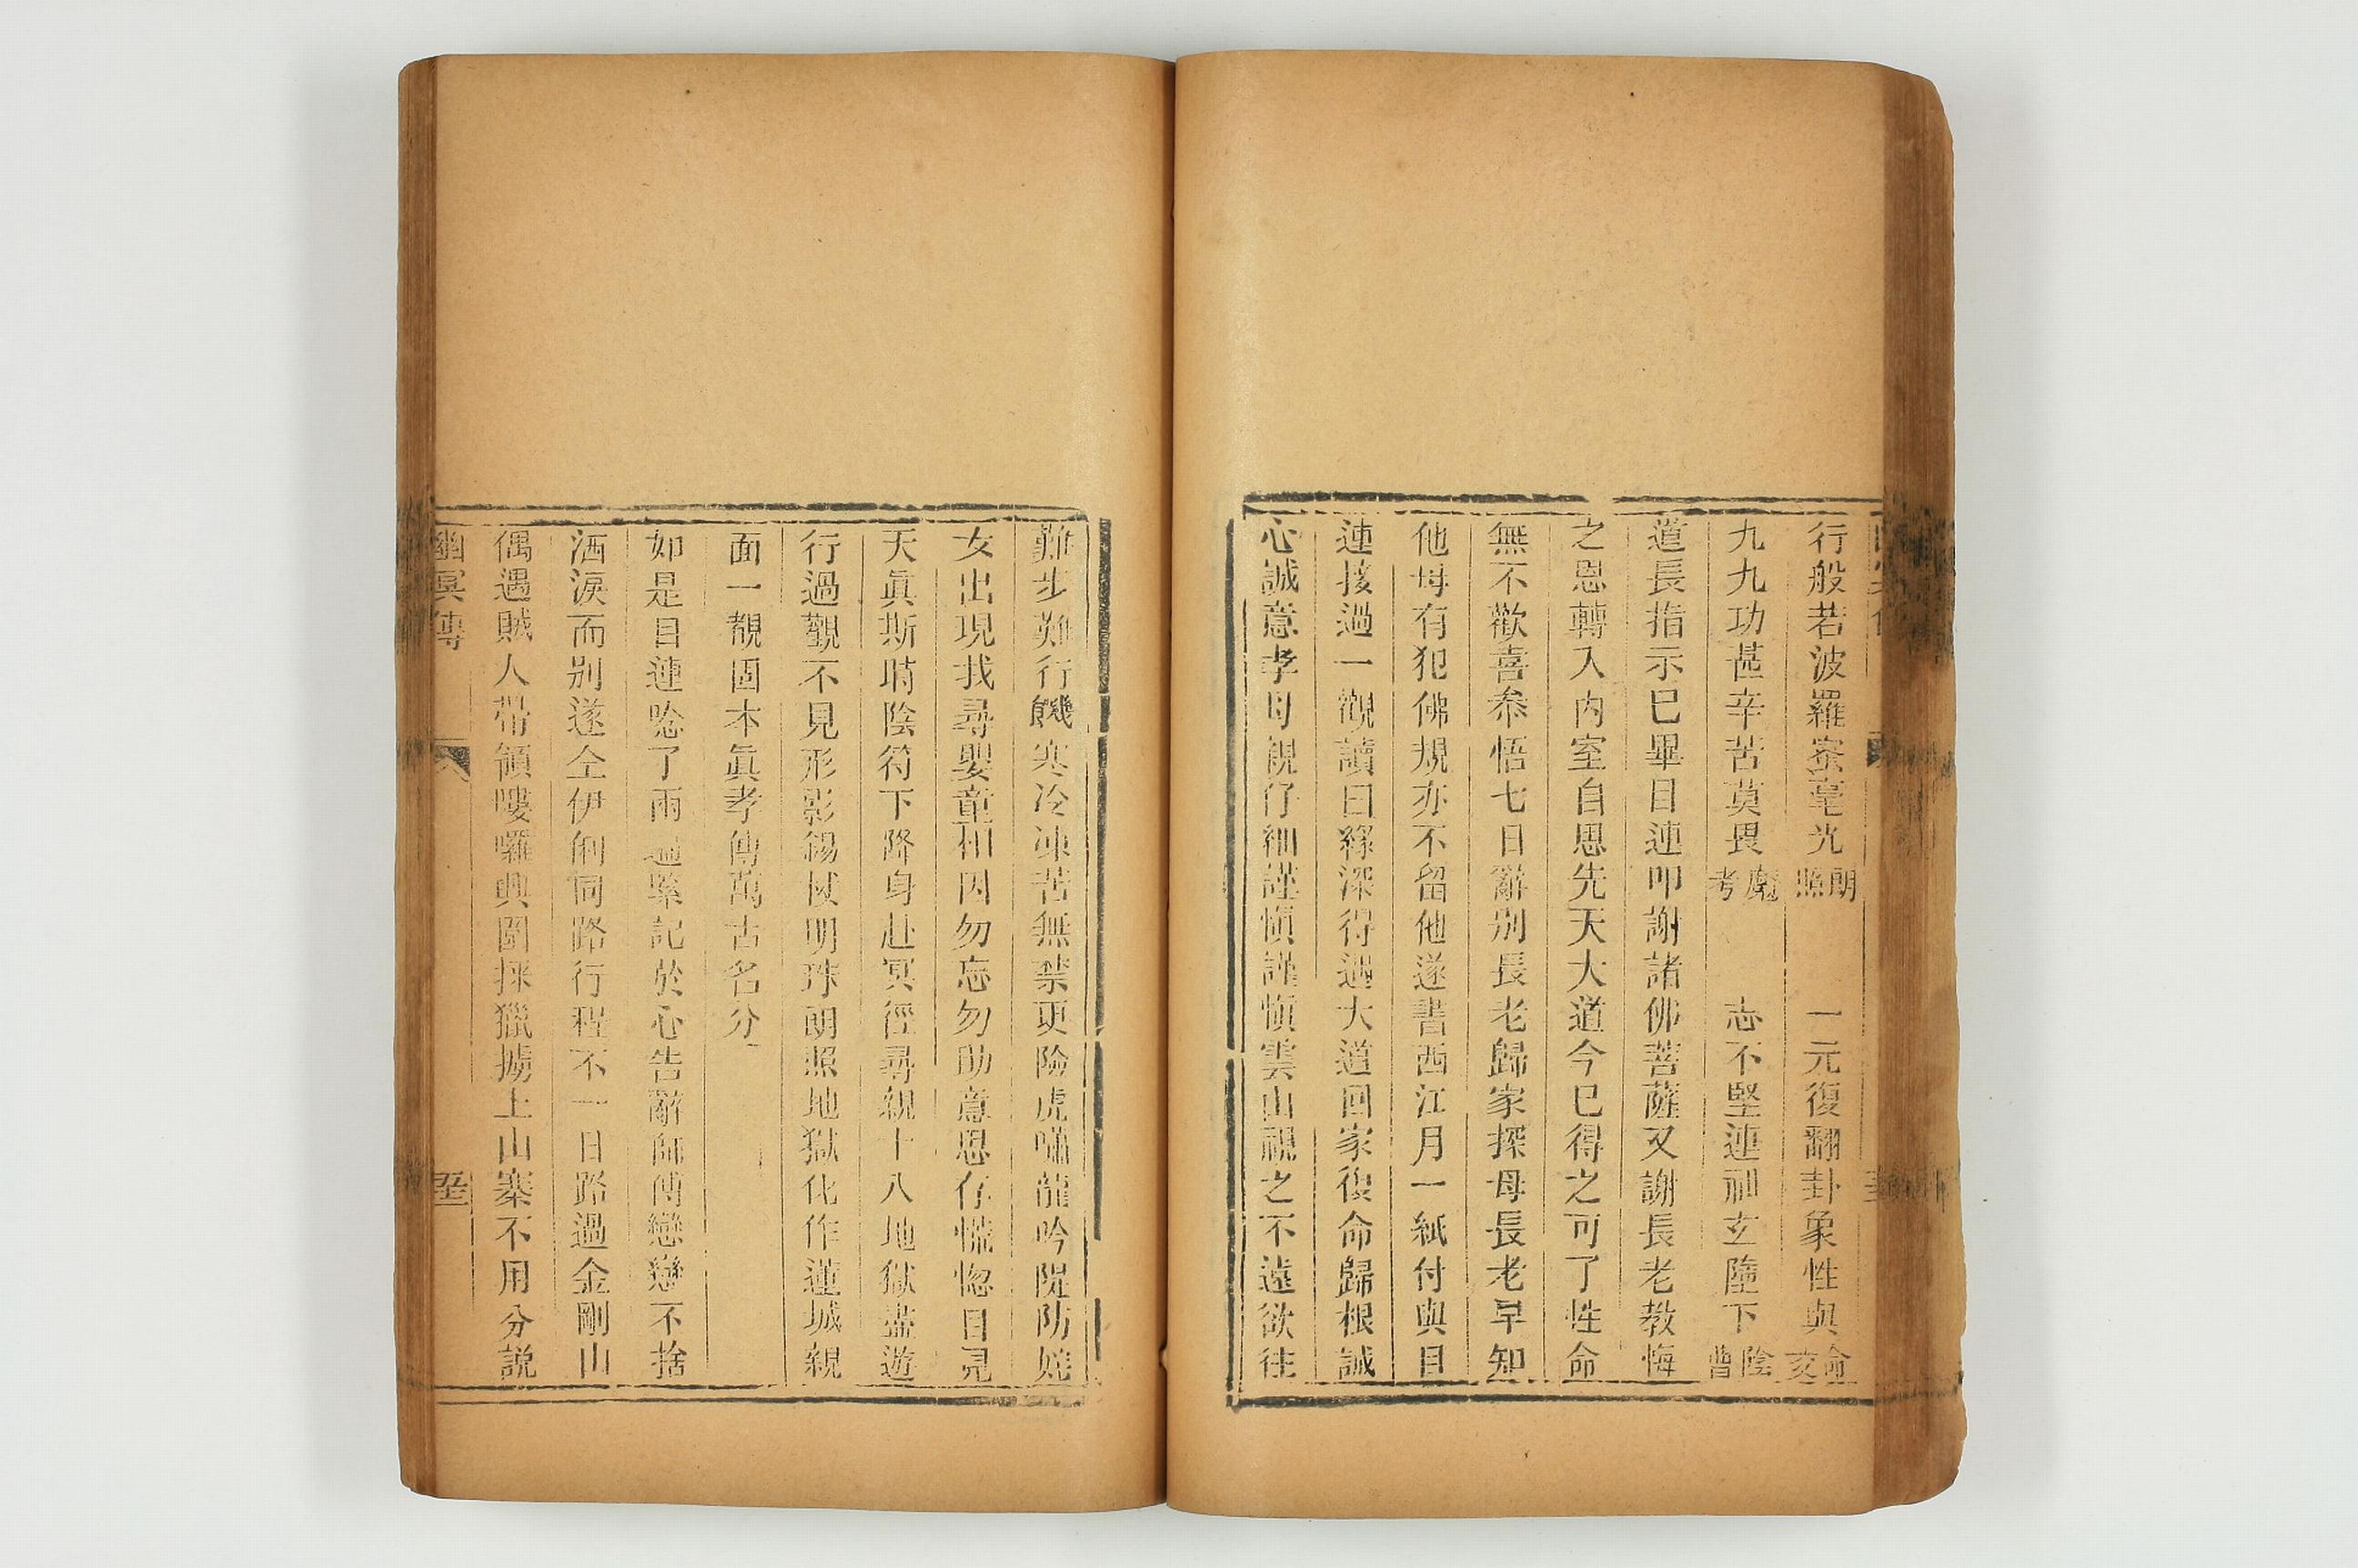 行般若波羅蜜毫光朗照　一元復翻卦象性與命交
九九功甚辛苦莫畏魔考　志不堅連祖玄墮下陰曹
道長指示已畢目連叩謝諸佛菩薩又謝長老教悔
之恩轉入內室自思先天大道今已得之可了性命
無不歡喜叅悟七日辭別長老歸家探母長老早知
他母有犯佛規亦不留他遂書西江月一紙付與目
連接過一觀讀曰緣深得遇大道回家復命歸根誠
心誠意孝母親仔細謹慎謹慎雲山視之不遠欲往
難步難行饑寒冷凍苦無禁更險虎嘯龍吟隄防姹
女出現找尋嬰童相因勿忘勿助意思存慌惚目見
天眞斯時陰符下降身赴冥徑尋親十八地獄盡遊
行過觀不見形影錫杖明珠朗照地獄化作蓮城親
面一覩固本眞孝傳萬古名分
如是目連唸了兩遍緊記於心告辭師傅戀戀不捨
洒淚而别遂仝伊俐同路行程不一日路過金剛山
偶遇賊人帶領嘍囉與圍採獵擄上山寨不用分説
幽冥傳